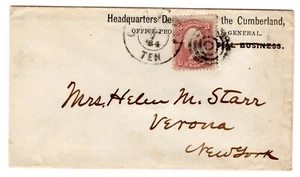 Headquarters De the Cumberland,
OFFICE PRO GENERAL.
BUSINESS.
64
TEN
Mrs. Helen M. Starr
Verona
New York